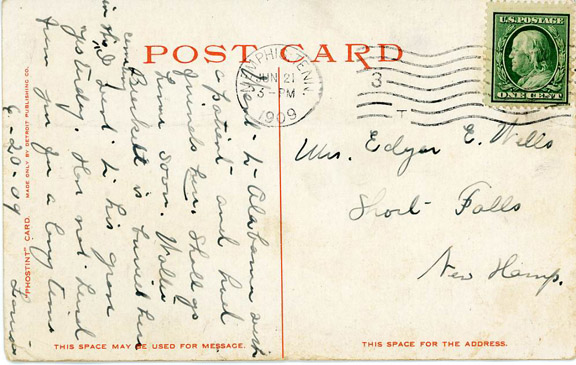 POST CARD
U.S. POSTAGE
ONE CENT
MEMPHIS, TENN.
JUN 21
3-PM
1909
3
Mrs. Edgar E. Wells
Short Falls
New Hamp.
Went to Alabama with
a patient and had
friends here. Shall go
home soon. Walter
Burkett is buried here
in this
cemetery
I went to his grave
yesterday. Have not heard
from you for a long time
Louise
6-20-09
"PHOSTINT" CARD. MADE ONLY BY DETROIT PUBLISHING CO.
THIS SPACE MAY BE USED FOR MESSAGE.
THIS SPACE FOR THE ADDRESS.